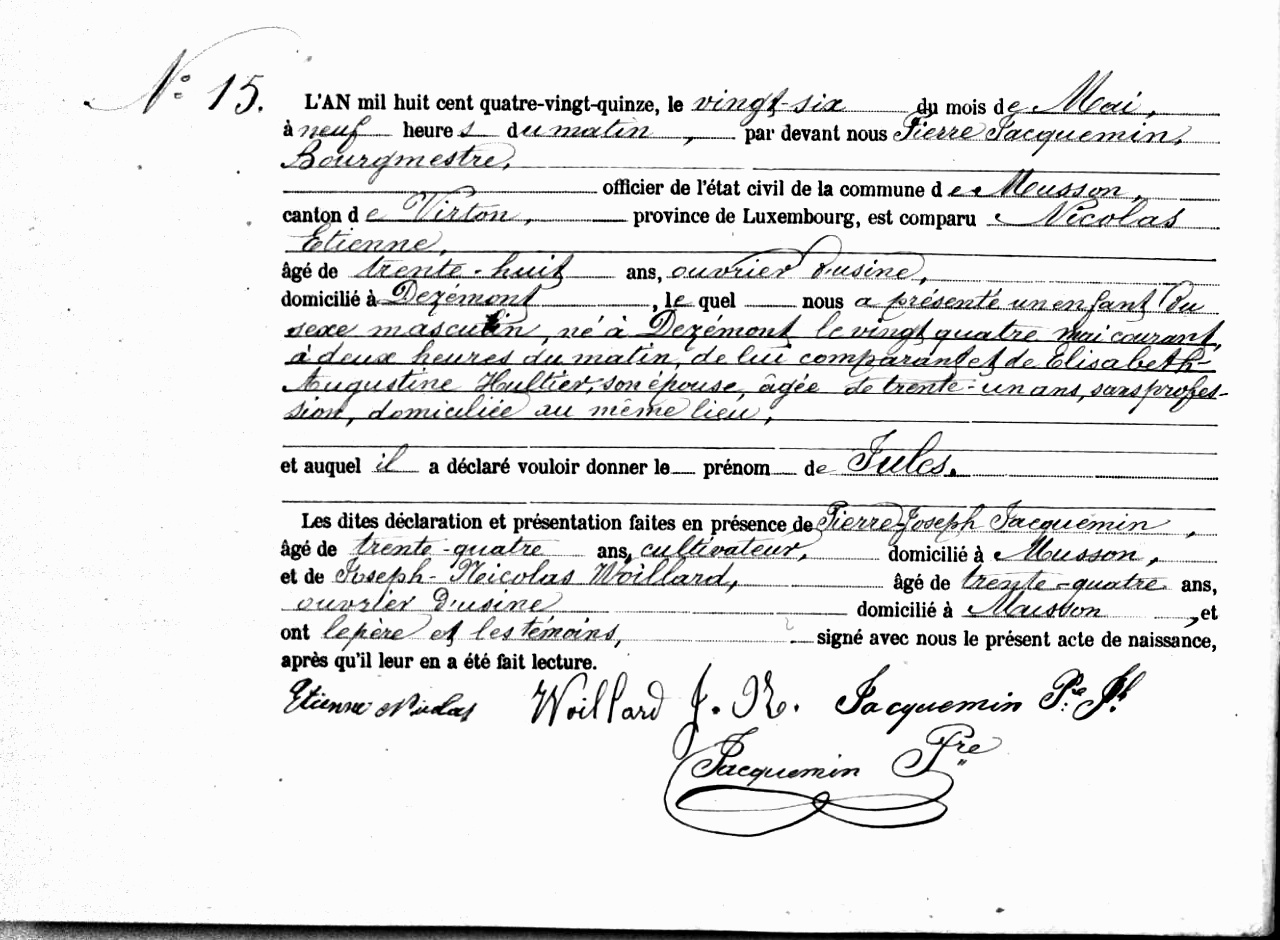 N° 15.
L'AN mil huit cent quatre-vingt-quinze, le vingt-six du mois de Mai,
à neuf heures du matin, par devant nous Pierre Jacquemin,
Bourgmestre,
officier de l'état civil de la commune de Musson,
canton de Virton, province de Luxembourg, est comparu Nicolas
Etienne,
âgé de trente-huit ans, ouvrier d'usine,
domicilié à Dezémont, lequel nous a présenté un enfant du
sexe masculin, né à Dezémont le vingt quatre mai courant,
à deux heures du matin, de lui comparant et de Elisabeth-
Augustine Hultier, son épouse, âgée de trente-un ans, sans profes-
sion, domiciliée au même lieu,
et auquel il a déclaré vouloir donner le prénom de Jules.
Les dites déclaration et présentation faites en présence de Pierre-Joseph Jacquemin,
âgé de trente-quatre ans, cultivateur, domicilié à Musson,
et de Joseph-Nicolas Woillard, âgé de trente-quatre ans,
ouvrier d'usine domicilié à Musson, et
ont le père et les témoins, signé avec nous le présent acte de naissance,
après qu'il leur en a été fait lecture.
Etienne Nicolas Woillard J. N. Jacquemin Pre Jh
Jacquemin Pre